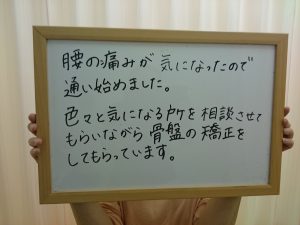 腰の痛みが気になったので
通い始めました。
色々と気になる所を相談させて
もらいながら骨盤の矯正を
してもらっています。